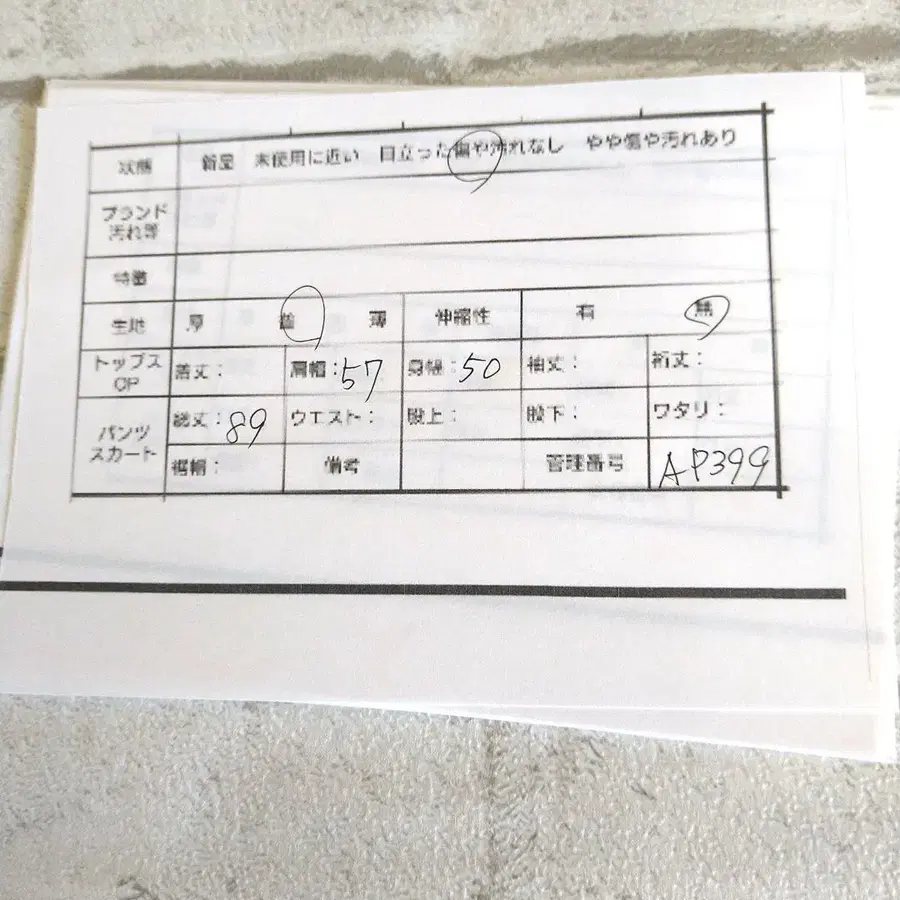 状態 新品 未使用に近い 目立った傷や汚れなし やや傷や汚れあり
ブランド
汚れ等
特徴
生地 厚 普 薄 伸縮性 有 無
トップス
OP
着丈： 肩幅：57 身幅：50 袖丈： 裄丈：
パンツ
スカート
総丈：89 ウエスト： 股上： 股下： ワタリ：
裾幅： 備考 管理番号 AP399